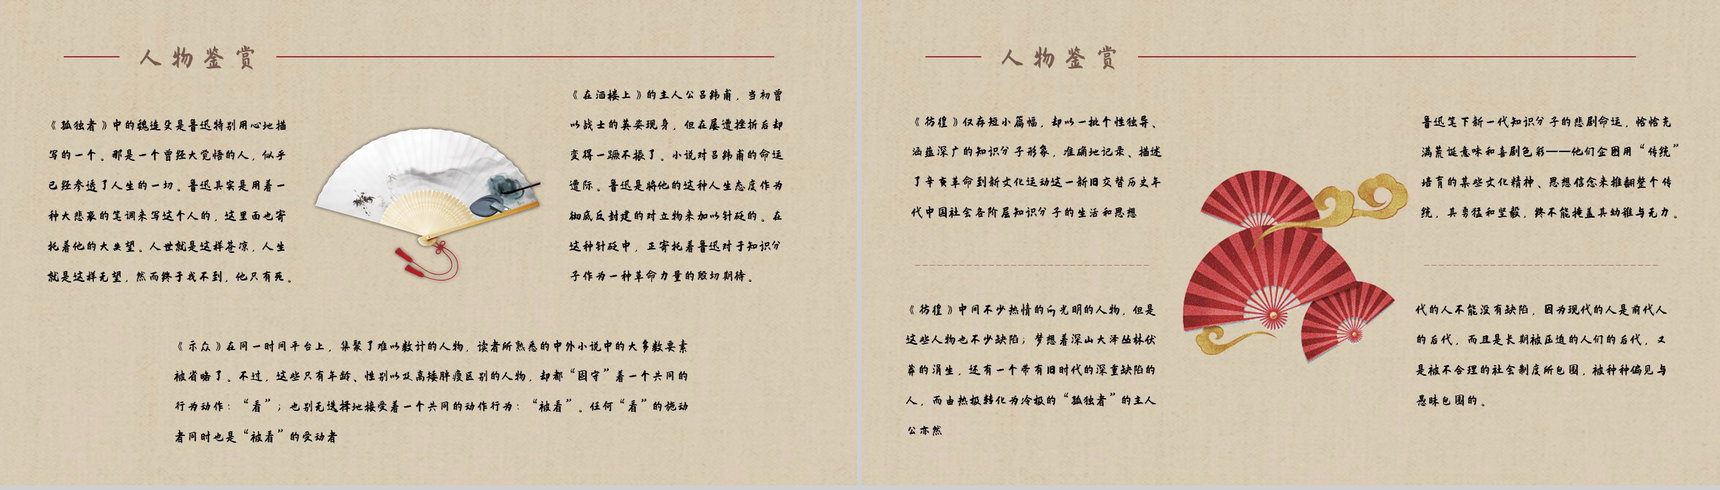 人物鉴赏
《孤独者》中的魏连殳是鲁迅特别用心地描
写的一个。那是一个曾经大觉悟的人，似乎
已经参透了人生的一切。鲁迅其实是用着一
种大悲哀的笔调来写这个人的，这里面也寄
托着他的大失望。人世就是这样苍凉，人生
就是这样无望，然而终于找不到，他只有死。
《在酒楼上》的主人公吕纬甫，当初曾
以战士的英姿现身，但在屡遭挫折后却
变得一蹶不振了。小说对吕纬甫的命运
遭际。鲁迅是将他的这种人生态度作为
彻底反封建的对立物来加以针砭的。在
这种针砭中，正寄托着鲁迅对于知识分
子作为一种革命力量的殷切期待。
《示众》在同一时间平台上，集聚了难以数计的人物，读者所熟悉的中外小说中的大多数要素
被省略了。不过，这些只有年龄、性别以及高矮胖瘦区别的人物，却都“固守”着一个共同的
行为动作：“看”；也别无选择地接受着一个共同的动作行为：“被看”。任何“看”的施动
者同时也是“被看”的受动者
人物鉴赏
《彷徨》仅存短小篇幅，却以一批个性独异、
涵蕴深广的知识分子形象，准确地记录、描述
了辛亥革命到新文化运动这一新旧交替历史年
代中国社会各阶层知识分子的生活和思想
鲁迅笔下新一代知识分子的悲剧命运，恰恰充
满荒诞意味和喜剧色彩——他们企图用“传统”
培育的某些文化精神、思想信念来推翻整个传
统，其勇猛和坚毅，终不能掩盖其幼稚与无力。
《彷徨》中间不少热情的向光明的人物，但是
这些人物也不少缺陷；梦想着深山大泽丛林伏
莽的涓生，还有一个带有旧时代的深重缺陷的
人，而由热极转化为冷极的“孤独者”的主人
公亦然
代的人不能没有缺陷，因为现代的人是前代人
的后代，而且是长期被压迫的人们的后代，又
是被不合理的社会制度所包围，被种种偏见与
愚昧包围的。